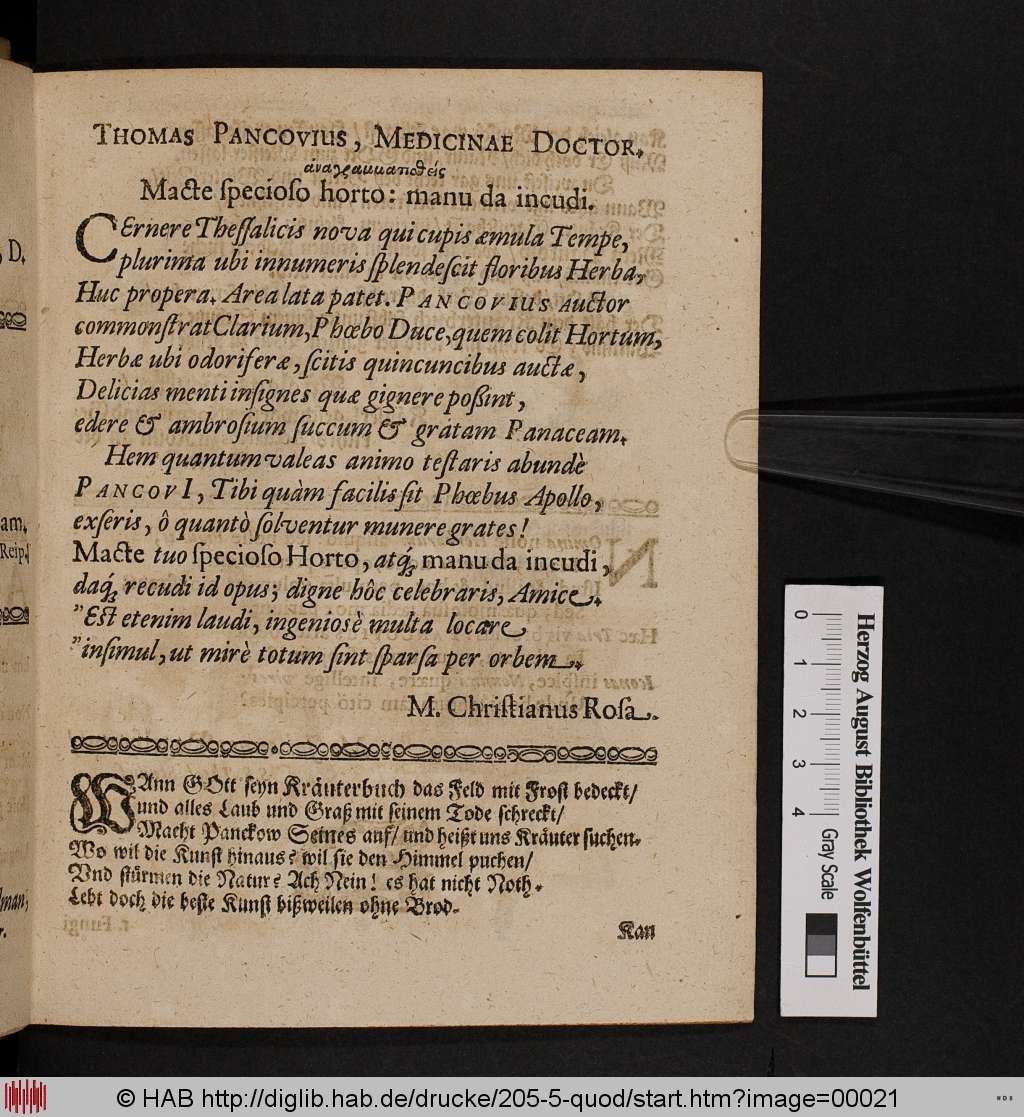 THOMAS PANCOVIUS, MEDICINAE DOCTOR.
ἀναγραμματισθείς
Macte ſpecioſo horto: manu da incudi.
CErnere Theſſalicis nova qui cupis æmula Tempe,
plurima ubi innumeris ſplendeſcit floribus Herba,
Huc propera. Area lata patet. PANCOVIUS auctor
commonſtrat Clarium, Phœbo Duce, quem colit Hortum,
Herbæ ubi odoriferæ, ſcitis quincuncibus auctæ,
Delicias menti inſignes quæ gignere poßint,
edere & ambroſium ſuccum & gratam Panaceam.
Hem quantum valeas animo teſtaris abundè
PANCOVI, Tibi quàm facilis ſit Phœbus Apollo,
exſeris, ô quantò ſolventur munere grates!
Macte tuo ſpecioſo Horto, atq́; manu da incudi,
daq́; recudi id opus; digne hôc celebraris, Amice.
"Eſt etenim laudi, ingeniosè multa locare
"inſimul, ut mirè totum ſint ſparſa per orbem.
M. Chriſtianus Roſa.
WAnn GOtt ſeyn Kräuterbuch das Feld mit Froſt bedeckt/
und alles Laub und Graß mit ſeinem Tode ſchreckt/
Macht Panckow Seines auf/ und heißt uns Kräuter ſuchen.
Wo wil die Kunſt hinaus? wil ſie den Himmel puchen/
Vnd ſtürmen die Natur? Ach Nein! es hat nicht Noth.
Lebt doch die beſte Kunſt bißweilen ohne Brod.
Kan
, D.
am.
Reip.
lman,
r.
0 1 2 3 4
Gray Scale
Herzog August Bibliothek Wolfenbüttel
© HAB http://diglib.hab.de/drucke/205-5-quod/start.htm?image=00021